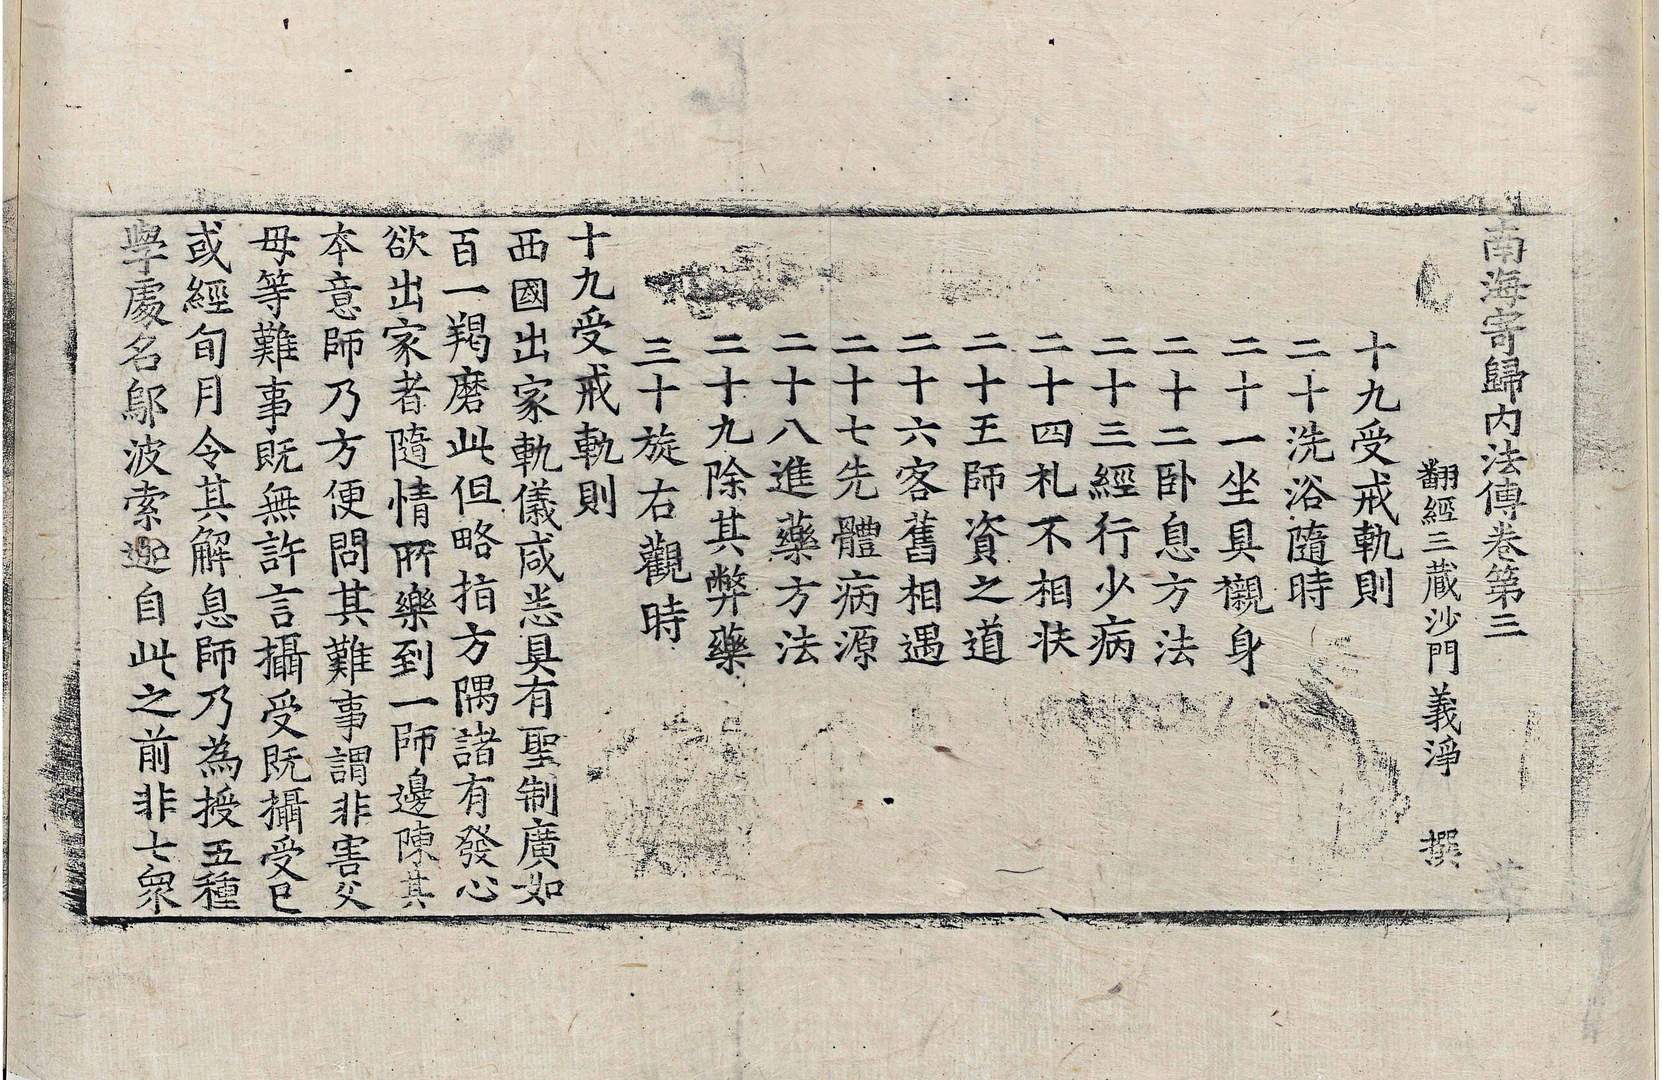 南海寄歸內法傳卷第三
翻經三藏沙門義淨 撰
十九受戒軌則
二十洗浴隨時
二十一坐具襯身
二十二卧息方法
二十三經行少病
二十四礼不相扶
二十五師資之道
二十六客舊相遇
二十七先體病源
二十八進藥方法
二十九除其弊藥
三十旋右觀時
十九受戒軌則
西國出家軌儀咸悉具有聖制廣如
百一羯磨此但略指方隅諸有發心
欲出家者隨情所樂到一師邊陳其
本意師乃方便問其難事謂非害父
母等難事既無許言攝受既攝受已
或經旬月令其解息師乃為授五種
學處名鄔波索迦自此之前非七衆